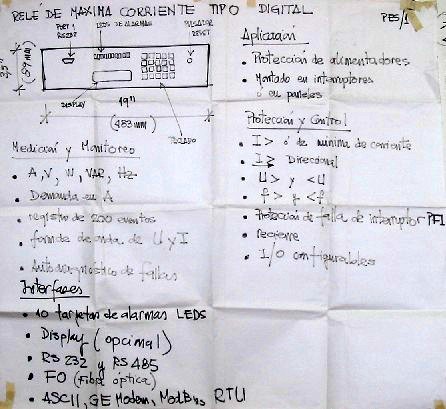 RELÉ DE MAXIMA CORRIENTE TIPO DIGITAL
PORT 1
RS232
LEDS DE ALARMAS
PULSADOR
RESET
(89mm)
DISPLAY
19"
(483mm)
TECLADO
Medición y Monitoreo
• A, V, W, VAR, Hz
• Demanda en A
• registro de 200 eventos
• forma de onda de U y I
• Autodiagnóstico de fallas
Interfases
• 10 tarjetas de alarmas LEDS
• Display (opcional)
• RS 232 y RS 485
• FO (Fibra óptica)
• ASCII, GE Modem, ModBus RTU
Aplicación
• Protección de alimentadores
• Montado en interruptores
ó en paneles
Protección y Control
• I> ó de mínima de corriente
• I> Direccional
• U> y <U
• f> y <f
• Protección de falla de interruptor
• Recierre
• I/O configurables